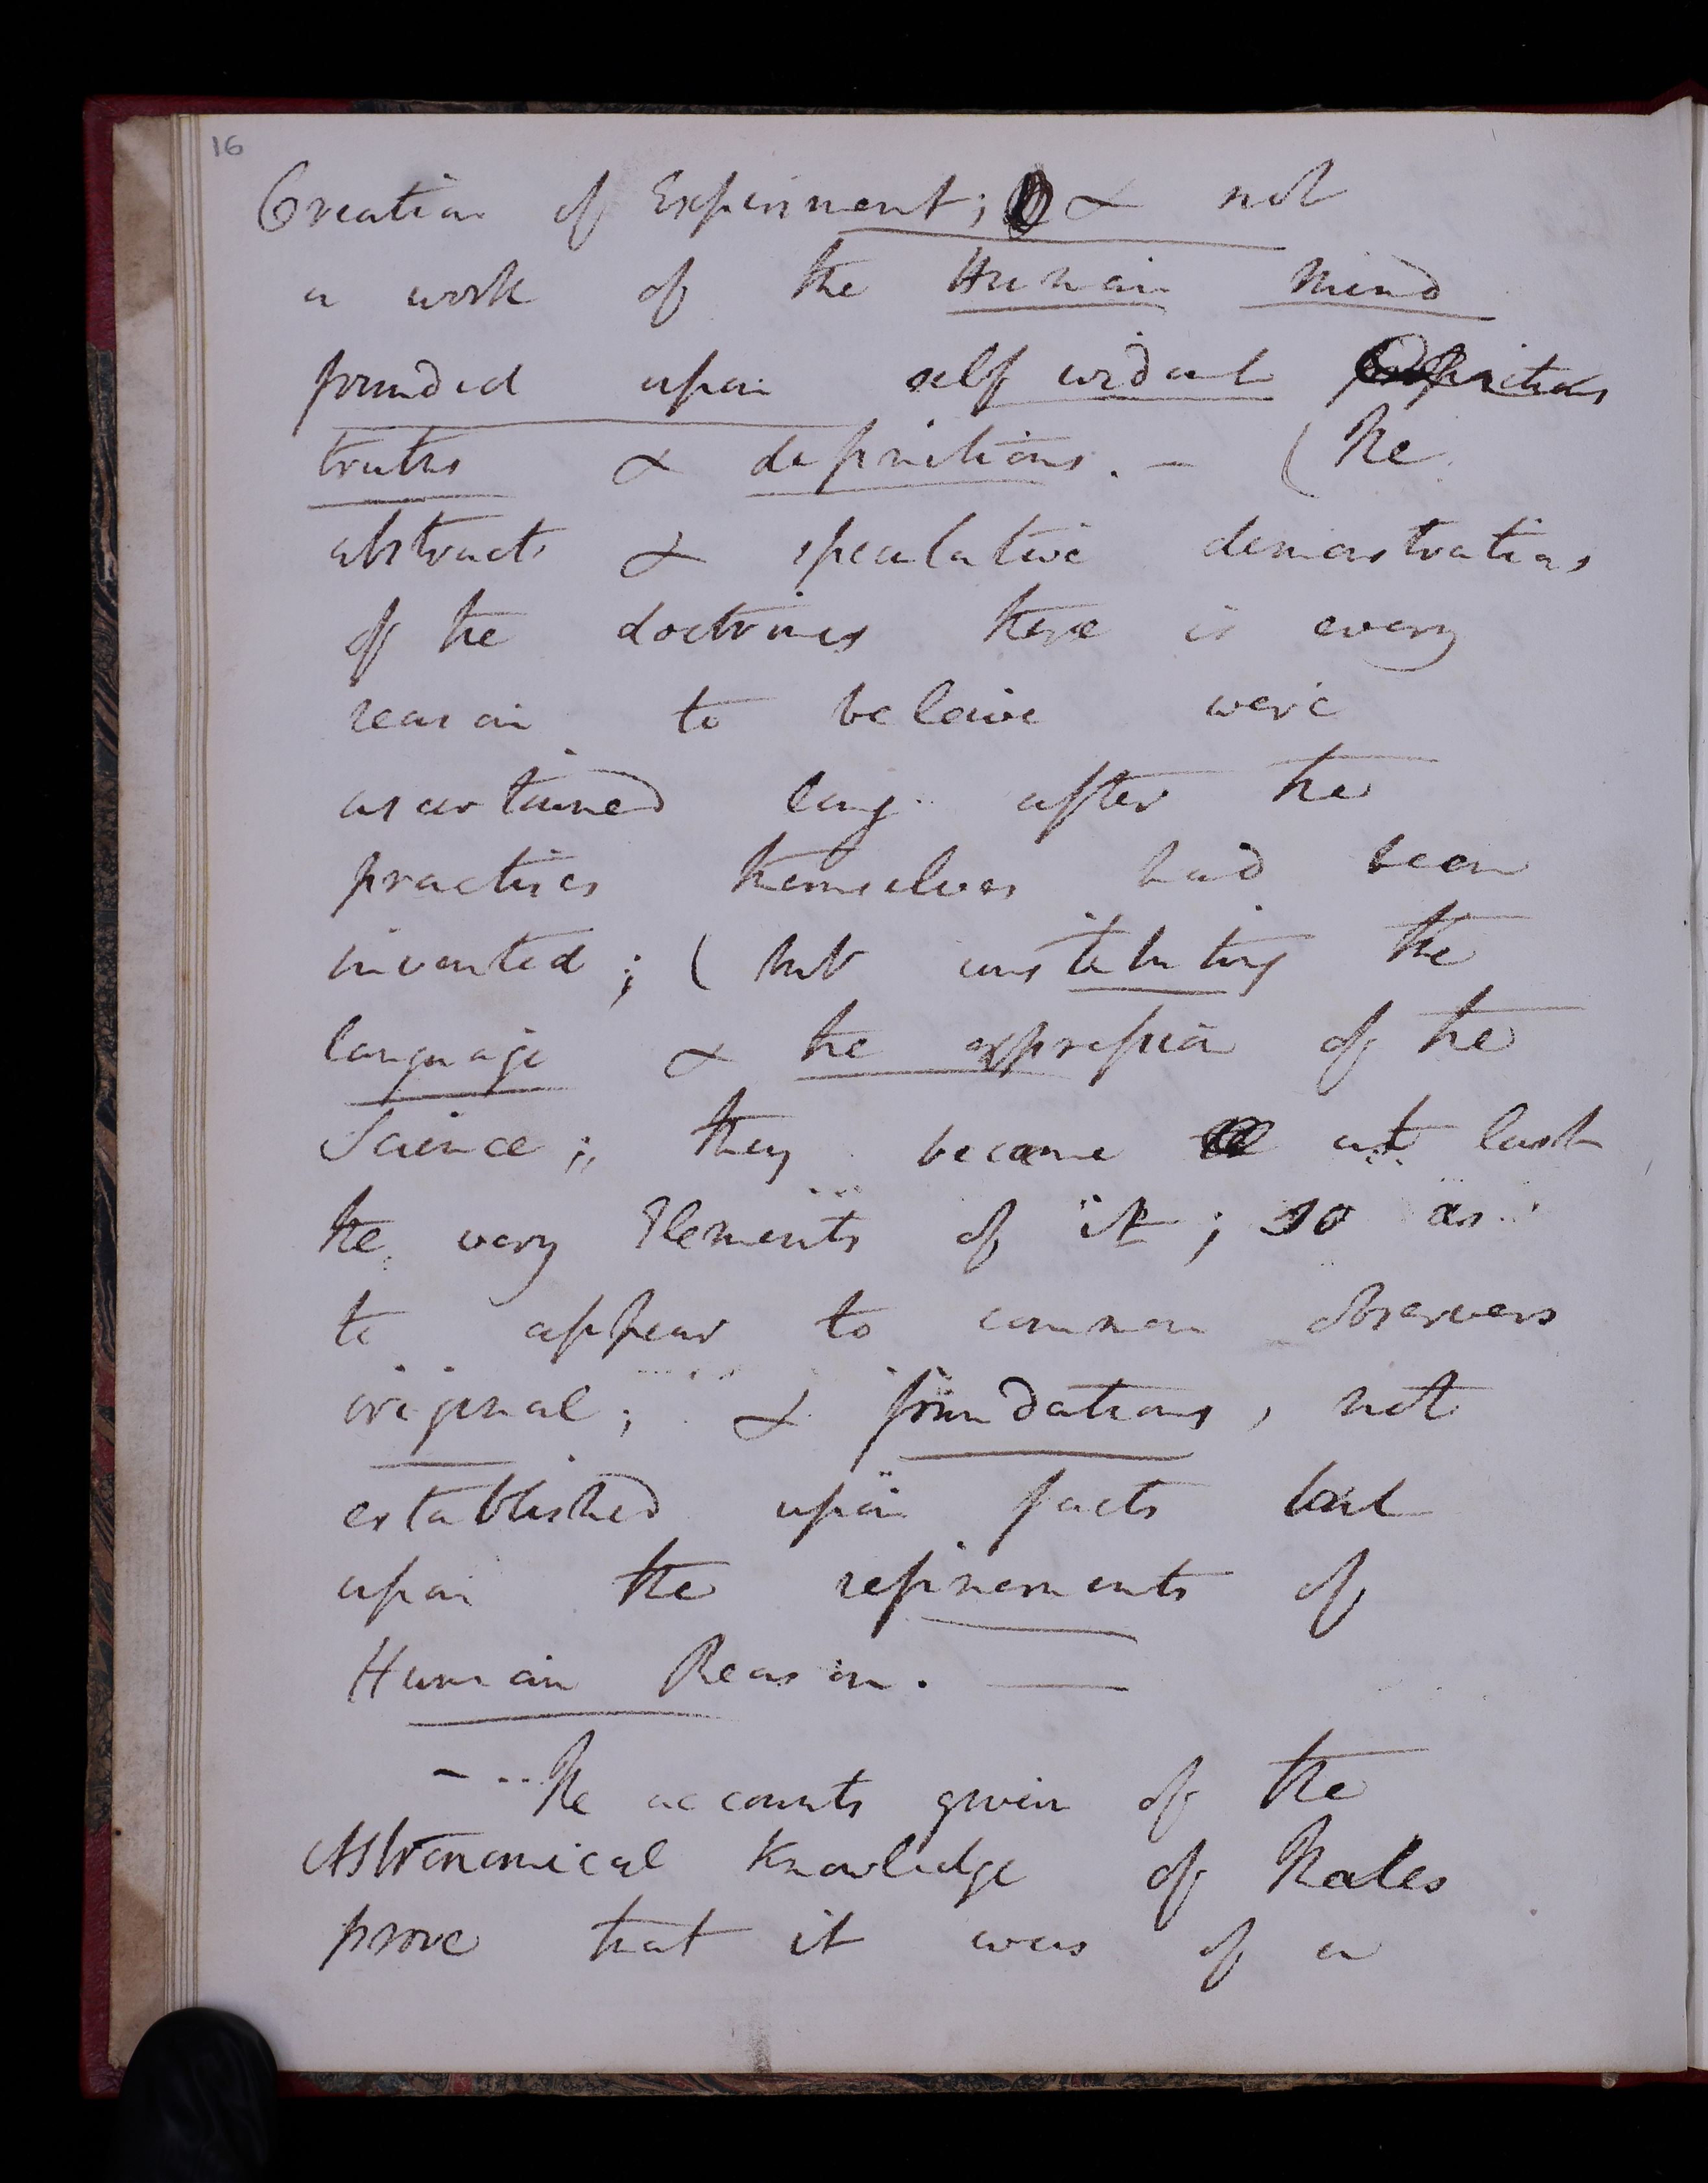 16
Creation of Experiment; & not
a work of the Human Mind
founded upon self evident definitions
truths & definitions. – (The
abstract & speculative demonstrations
of the doctrines there is every
reason to beleive were
ascertained long after the
practices themselves had been
invented; (but constituting the
language & the expression of the
Science; they became at last
the very Elements of it; so as
to appear to common observers
original; & foundations, not
established upon facts but
upon the refinements of
Human Reason. —
– The accounts given of the
Astronomical Knowledge of Thales
prove that it was of a